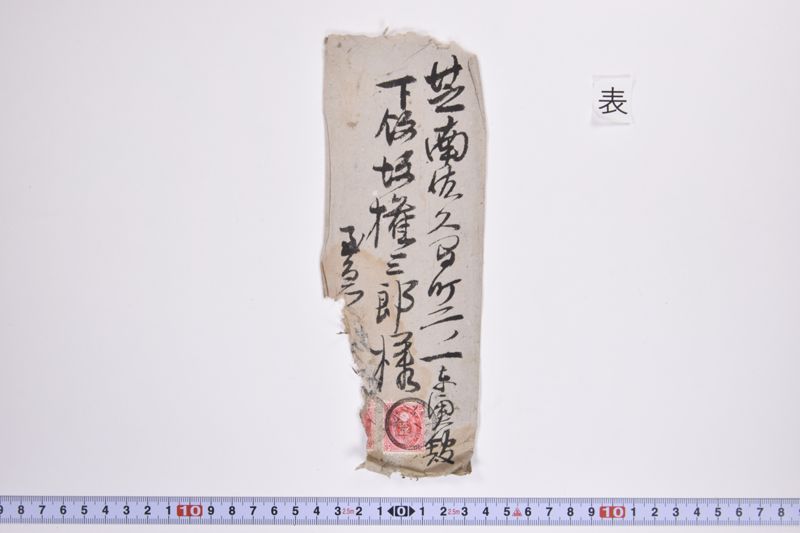 芝南佐久間町二ノ一
下飯坂権三郎様
至急
表
9 8 7 6 5 4 3 2 1 10 9 8 7 6 5 4 3 2.5m 2 1 0 1 2 2.5m 3 4 5 6 7 8 9 10 1 2 3 4 5 6 7 8 9